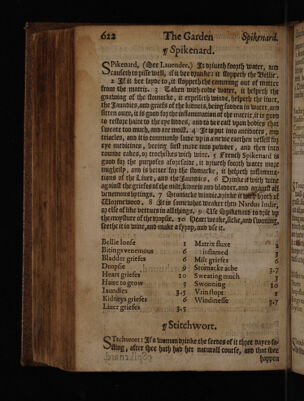 622 The Garden Spikenard.
¶ Spikenard.
Spikenard, (See Lauender,) It driueth foorth water, and
causeth to pisse well, if it bee drunke: it stoppeth the Bellie.
2 If it bee layde to, it stoppeth the comming out of matter
from the matrix. 3 Taken with colde water, it helpeth the
gnawing of the stomacke, it expelleth winde, helpeth the liuer,
the Jaundies, and griefs of the kidneis, being sodden in water, and
sitten ouer, it is good for the inflammation of the matrix, it is good
to restore haire to the eye liddes, and to bee cast vpon bodies that
sweate too much, and are moist. 4 It is put into antidotes, and
triacles, and it is commonly laide vp in a newe earthen vessell for
eye medicines, beeing first made into powder, and then into
rounde cakes, or trochiskes with wine. 5 French Spikenard is
good for the purposes aforesaide, it driueth foorth water more
mightily, and is better for the stomacke, it helpeth inflamma-
tions of the Liuer, and the Jaundis. 6 Drunke with wine
against the griefes of the milt, kidneis and bladder, and against all
venemous bytings.
Wormewood. 8 It is somewhat weaker then Nardus Indie,
or else of like vertues in all things. 9 Use Spikenard to drie vp
the moysture of the stomacke.
seethe it in wine, and make a syrop, and vse it.
Bellie loose 1
Bitings venemous 6
Bladder griefes 6
Dropsie 9
Heart griefes 10
Haire to grow 3
Iaundies 3.5
Kidneys griefes 6
Liuer griefes 3.5
Matrix fluxe 2
inflamed 3
Milt griefes 6
Stomacke ache 3.7
Sweating much 3
Swooning 10
Vrin stopt 1
Windinesse 3.7
¶ Stitchwort.
Stitchwort: If a woman drinke the seedes of it three dayes fa-
sting, after shee hath had her naturall course, and that shee
happen